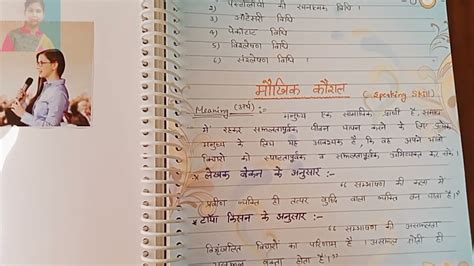 2) पेस्टालॉजी की रचनात्मक विधि ।
3) मॉंटेसरी विधि
4) पेकोटाट विधि
5) विश्लेषण विधि ।
6) संश्लेषण विधि ।
मौखिक कौशल (Speaking Skill)
Meaning (अर्थ) मनुष्य एक सामाजिक प्राणी है, समाज
में रहकर सफलतापूर्वक जीवन यापन करने के लिए प्रत्येक
मनुष्य के लिए यह आवश्यक है, कि वह अपने भावों
विचारों को स्पष्टतापूर्वक व सफलतापूर्वक अभिव्यक्त कर सके ।
* लेखक बेकन के अनुसार :-
“ सम्भाषण की कला में
प्रवीण व्यक्ति ही तत्पर बुद्धि वाला व्यक्ति बन पाता है”।
* टामा किसन के अनुसार :-
“ सम्भाषण की असफलता
विश्रृंखलित विचारों का परिणाम है । असफल
वक्ता होता है।”